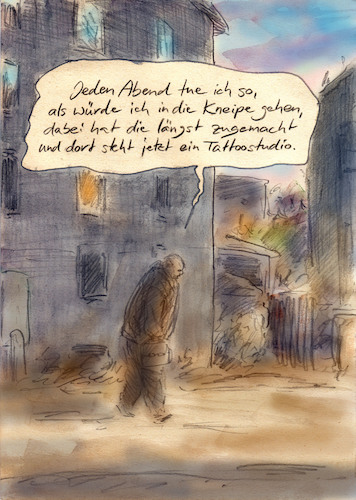 Jeden Abend tue ich so,
als würde ich in die Kneipe gehen,
dabei hat die längst zugemacht
und dort steht jetzt ein Tattoostudio.